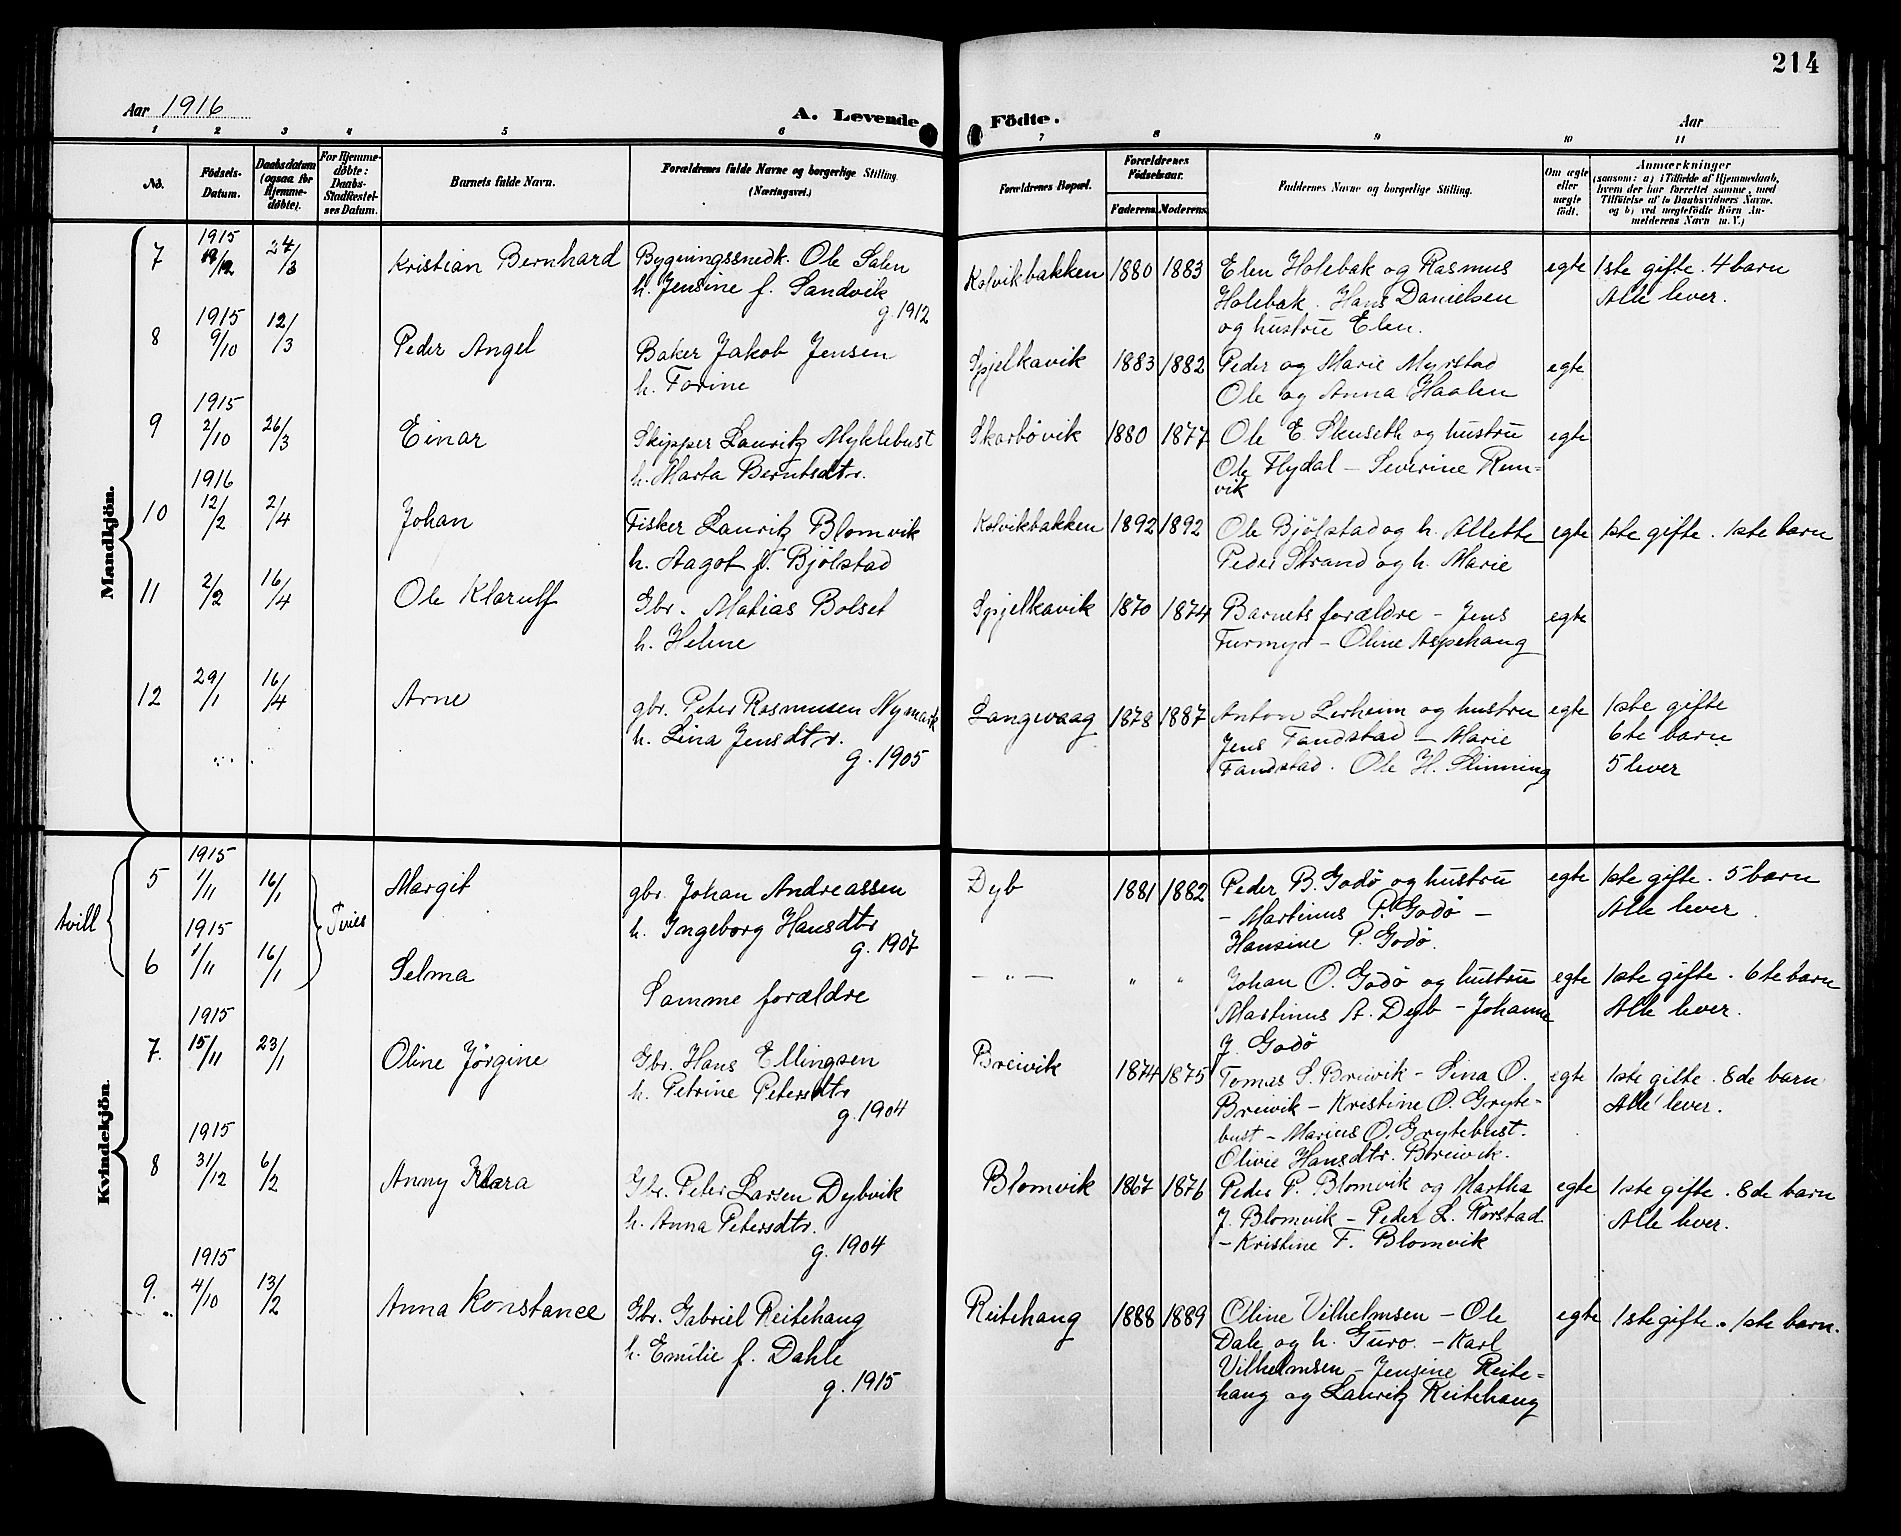 214
Aar 1916
A. Levende Födte.
Aar
1 2 3 4 5 6 7 8 9 10 11
No.
Födsels-Datum.
Daabsdatum (ogsaa for Hjemme-döbte).
For Hjemme-döbte: Daabs-Stadfæstel-ses Datum.
Barnets fulde Navn.
Forældrenes fulde Navne og borgerlige Stilling. (Næringsvei.)
Forældrenes Bopæl.
Forældrenes Födselsaar.
Faderens. Moderens.
Faddernes Navne og borgerlige Stilling.
Om ægte eller uægte födt.
Anmærkninger
(saasom: a) i Tilfælde af Hjemmedaab,
hvem der har forrettet samme, med
Tilföielse af to Daabsvidners Navne,
og b) ved uægtefödte Börn An-
melderens Navn m. V.)
Mandkjön.
7 1915 24/3 Kristian Bernhard Bygningssnedk. Ole Salen Kolvikbakken 1880 1883 Elen Holebak og Rasmus egte 1ste gifte. 4 barn
h. Jensine f. Sandvik Holebak. Hans Danielsen Alle lever.
g. 1912 og hustru Elen.
8 1915 9/10 12/3 Peder Angel Baker Jakob Jensen Spjelkavik 1883 1882 Peder og Marie Myrstad egte
h. Torine Ole og Anna Haalen
9 1915 2/10 26/3 Einar Skipper Lauritz Myklebust Skarbövik 1880 1877 Ole E. Skuseth og hustru egte
h. Marta Berntsdtr. Ole Flydal – Severine Rem-
vik
10 1916 12/2 2/4 Johan Fisker Lauritz Blomvik Kolvikbakken 1892 1892 Ole Bjölstad og h. Allette egte 1ste gifte. 1ste barn
h. Aagot f. Bjölstad Peder Strand og h. Marie
11 2/2 16/4 Ole Klarulf Gbr. Matias Bolset Spjelkavik 1870 1874 Barnets forældre – Jens egte
h. Heline Furmyr – Oline Aspehaug
12 29/1 16/4 Arne gbr. Peter Rasmusen Nymark Langevaag 1878 1887 Anton Lerheim og hustru egte 1ste gifte
h. Lina Jensdtr. Jens Fandstad – Marie 6te barn
g. 1905 Fandstad. Ole H. Slinning 5 lever
Kvindekjön.
tvill
5 1915 1/11 16/1 Margit gbr. Johan Andreassen Dyb 1881 1882 Peder B. Godø og hustru egte 1ste gifte. 5 barn
h. Ingeborg Hansdtr – Martinus P. Godø – Alle lever.
g. 1907 Hansine P. Godø.
6 1915 1/11 16/1 Selma Samme forældre – " – " " Johan O. Godø og hustru egte 1ste gifte. 6te barn
Martinus A. Dyb – Johanne Alle lever.
J. Godø
7. 1915 15/11 23/1 Oline Jörgine Gbr. Hans Ellingsen Breivik 1874 1875 Tomas S. Breivik – Sina O. egte 1ste gifte. 8de barn
h. Petrine Petersdtr Breivik – Kristine O. Gryte- Alle lever.
g. 1904 bust – Marius O. Grytebust.
Olivie Hansdtr. Breivik.
8 1915 31/12 6/2 Anny Klara Gbr. Peter Larsen Dybvik Blomvik 1867 1876 Peder P. Blomvik og Martha egte 1ste gifte. 8de barn
h. Anna Petersdtr. J. Blomvik – Peder L. Rörstad Alle lever.
g. 1904 – Kristine F. Blomvik
9. 1915 4/10 13/2 Anna Konstance Gbr. Gabriel Reitehaug Reitehaug 1888 1889 Oline Vilhelmsen – Ole egte 1ste gifte. 1ste barn.
h. Emilie f. Dahle Dale og h. Guro. – Karl
g. 1915 Vilhelmsen – Jensine Reite-
haug og Lauritz Reitehaug